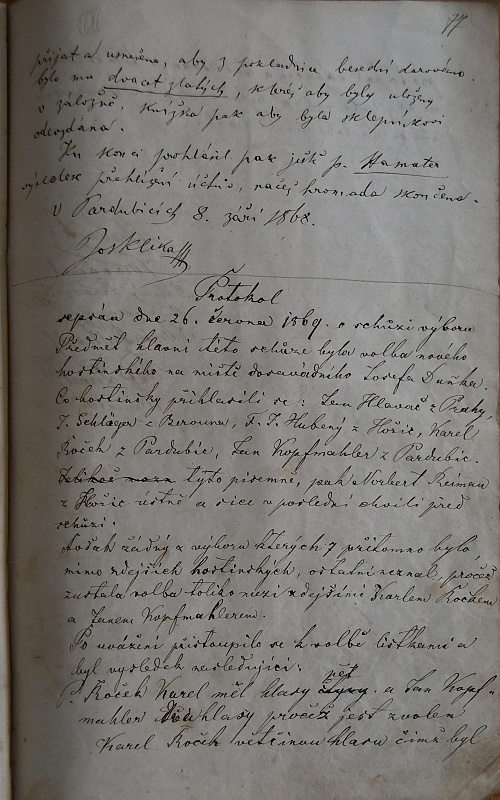 77
přijat a usneseno, aby z pokladnice besední darováno
bylo mu dvacet zlatých, kteréž aby byly uloženy
v záložně, knížka pak aby byla sklepníkovi
odevzdána.
Ku konci prohlásil pak ještě p. Hamater
výsledek přehlížení účtů, načež hromada skončena.
V Pardubicích 8. září 1868.
Jos Klika
Protokol
sepsán dne 26. června 1869. o schůzi výboru
Předmět hlavní této schůze byla volba nového
hostinského na místě dosavádního Josefa Duška.
Co hostinský přihlásili se: Jan Hlaváč z Prahy
J. Schläger z Berouna, F. J. Hubený z Hořic, Karel
Roček z Pardubic, Jan Kopfmahler z Pardubic.
týto písemně, pak Norbert Reiman
z Hořic ústně a sice v poslední chvíli před
schůzí.
Však žádný z výboru kterých 7 přítomno bylo,
mimo zdejších hostinských, ostatní neznal, pročež
zůstala volba toliko mezi zdejšími Karlem Ročkem
a Janem Kopfmahlerem.
Po uvážení přistoupilo se k volbě lístkami a
byl výsledek následující:
P. Roček Karel měl hlasy pět a Jan Kopf-
mahler dva hlasy pročež jest zvolen
Karel Roček většinou hlasů čímž byl